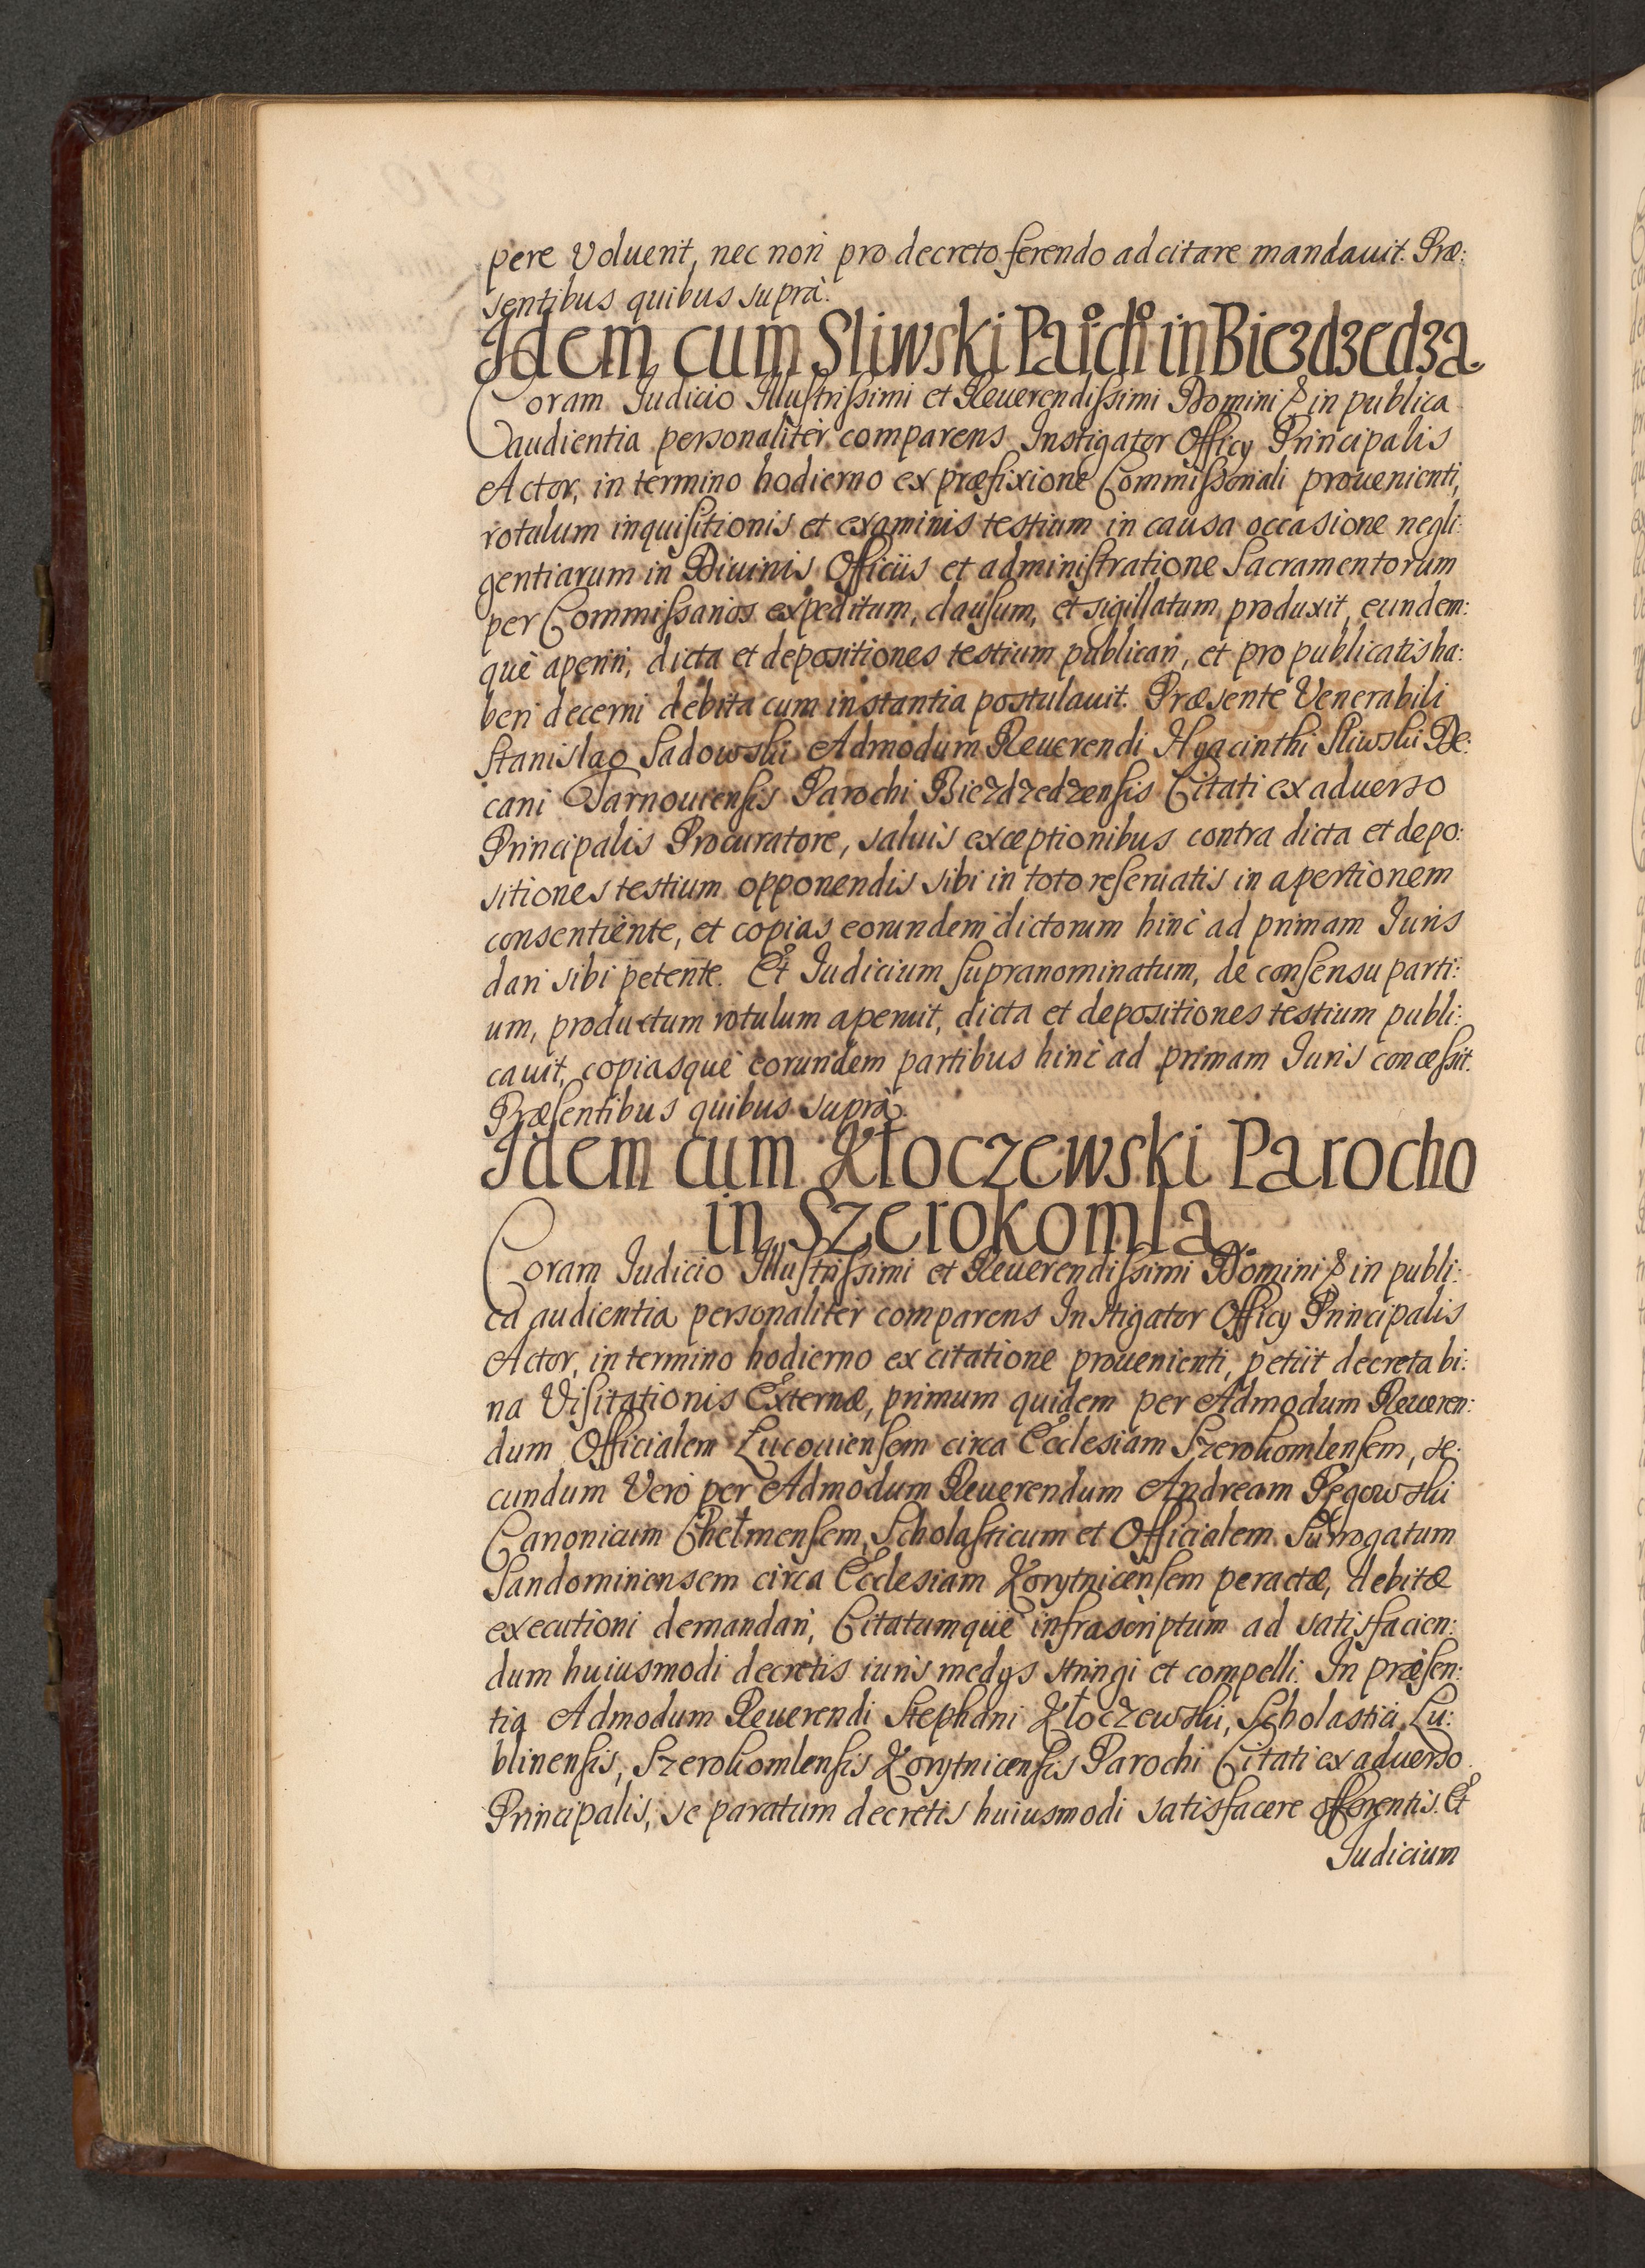 pere Voluerit, nec non pro decreto ferendo adcitare mandauit. Præ:
sentibus quibus suprà.
Idem cum Sliwski Paröchö in Biezdzedza.
Coram Iudicio Illustrissimi et Reuerendissimi Domini & in publica
audientia personalitèr comparens Instigator Officij Principalis
Actor, in termino hodierno ex præfixione Commissoriali prouenienti,
rotulum inquisitionis et examinis testium in causa occasione negli:
gentiarum in Diuinis Officiis et administratione Sacramentorum
per Commissarios expeditum, clausum, et sigillatum produxit, eundem:
què aperiri, dicta et depositiones testium publicari, et pro publicatis ha:
beri decerni debita cum instantia postulauit. Præsente Venerabili
Stanislao Sadowski Admodum Reuerendi Hyacinthi Sliwski De:
cani Tarnouiensis Parochi Biezdzedzensis Citati ex aduerso
Principalis Procuratore, saluis exceptionibus contra dicta et depo:
sitiones testium opponendis sibi in toto reseruatis in apertionem
consentiente, et copias eorundem dictorum hinc ad primam Iuris
dari sibi petente. Et Iudicium supranominatum, de consensu parti:
um, productum rotulum aperuit, dicta et depositiones testium publi:
cauit, copiasquè eorundem partibus hinc ad primam Iuris concessit.
Præsentibus quibus suprà.
Idem cum Kłoczewski Parocho
in Szerokomla.
Coram Iudicio Illustrissimi et Reuerendissimi Domini & in publi:
ca audientia personalitèr comparens Instigator Officij Principalis
Actor, in termino hodierno ex citatione prouenienti, petiit decreta bi:
na Visitationis Externæ, primum quidem per Admodum Reueren:
dum Officialem Lucouiensem circa Ecclesiam Szerokomlensem, se:
cundum Verò per Admodum Reuerendum AndreamRęgowski
Canonicum Chełmensem, Scholasticum et Officialem Surrogatum
Sandomiriensem circa Ecclesiam Korytnicensem peractæ, debitæ
executioni demandari, Citatumquè infrascriptum ad satisfacien:
dum huiusmodi decretis iuris medijs stringi et compelli. In præsen:
tia Admodum Reuerendi Stephani Kłoczewski, Scholastici Lu:
blinensis, Szerokomlensis Korytnicensis Parochi Citati ex aduerso
Principalis, se paratum decretis huiusmodi satisfacere offerentis. Et
Iudicium